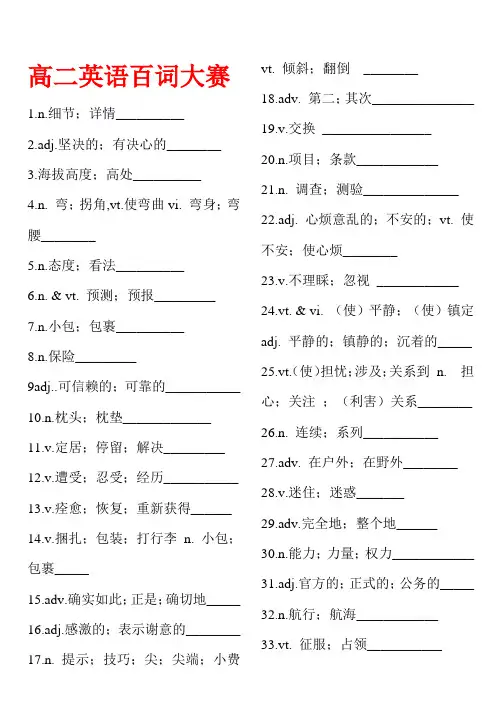 高二英语百词大赛
1.n.细节；详情__________
2.adj.坚决的；有决心的________
3.海拔高度；高处__________
4.n. 弯；拐角,vt.使弯曲 vi. 弯身；弯
腰________
5.n.态度；看法__________
6.n. & vt. 预测；预报_________
7.n.小包；包裹__________
8.n.保险_________
9adj..可信赖的；可靠的___________
10.n.枕头；枕垫_____________
11.v.定居；停留；解决_________
12.v.遭受；忍受；经历___________
13.v.痊愈；恢复；重新获得______
14.v.捆扎；包装；打行李 n. 小包；
包裹_____
15.adv.确实如此；正是；确切地_____
16.adj.感激的；表示谢意的________
17.n. 提示；技巧；尖；尖端；小费
vt. 倾斜；翻倒 ________
18.adv. 第二；其次_______________
19.v.交换 ________________
20.n.项目；条款____________
21.n. 调查；测验______________
22.adj. 心烦意乱的；不安的；vt. 使
不安；使心烦________
23.v.不理睬；忽视 ____________
24.vt. & vi. （使）平静；（使）镇定
adj. 平静的；镇静的；沉着的_____
25.vt.（使）担忧；涉及；关系到 n. 担
心；关注 ；（利害）关系________
26.n. 连续；系列___________
27.adv. 在户外；在野外________
28.v.迷住；迷惑_______
29.adv.完全地；整个地______
30.n.能力；力量；权力____________
31.adj.官方的；正式的；公务的_____
32.n.航行；航海____________
33.vt. 征服；占领___________